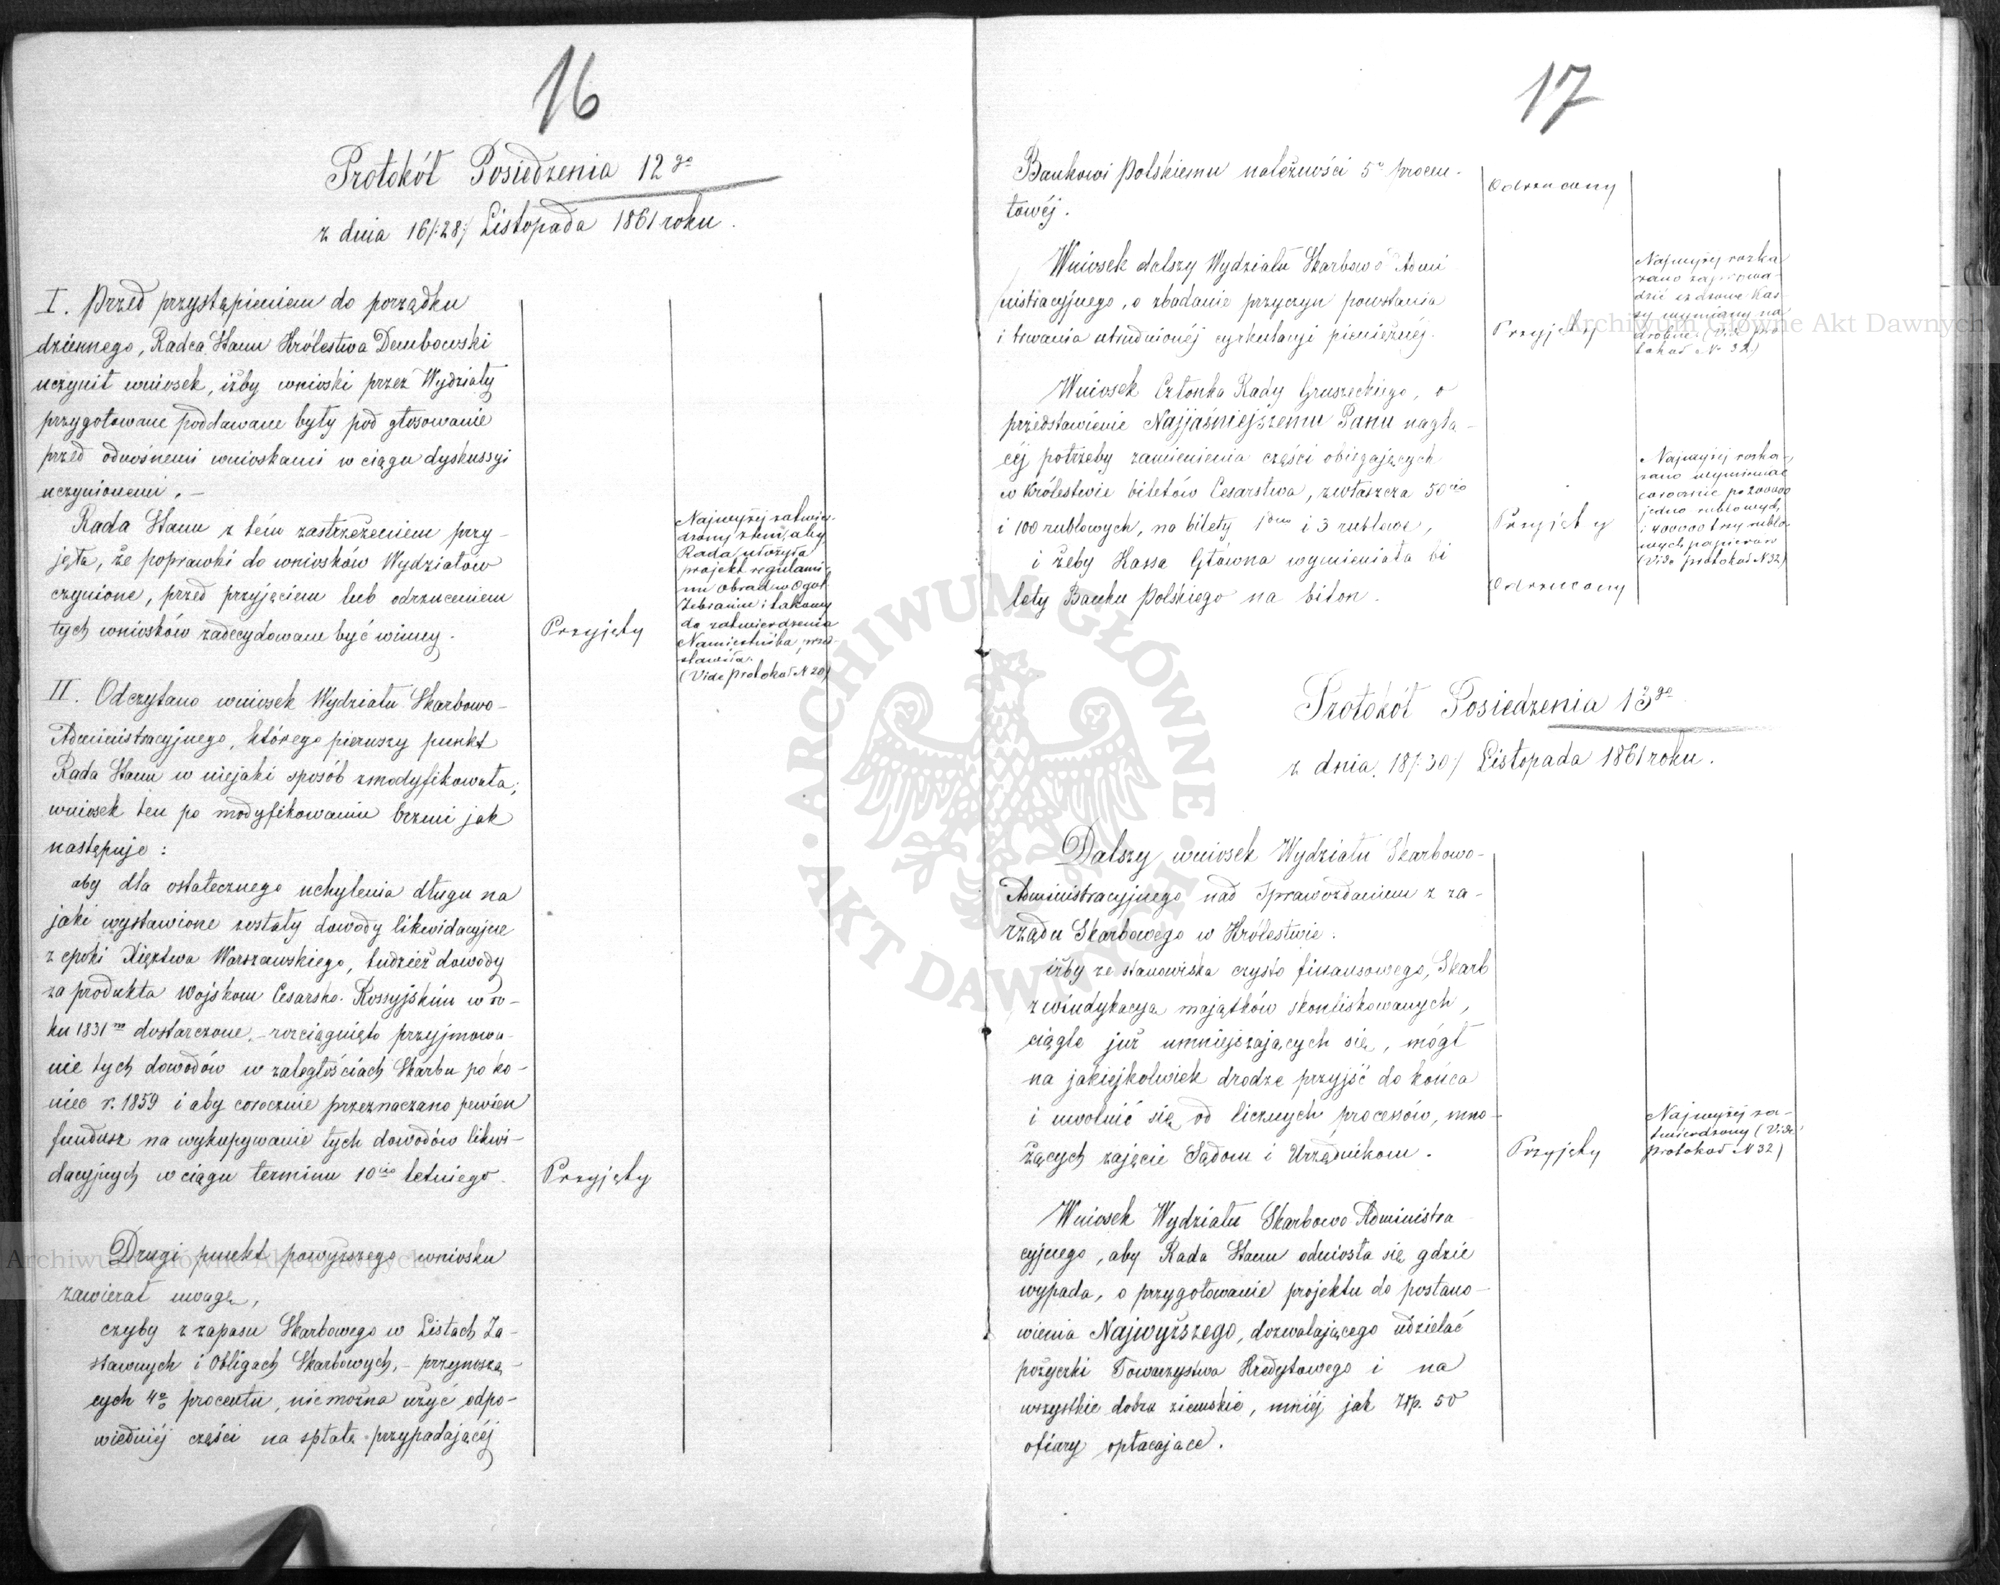 16
Protokół Posiedzenia 12go
z dnia 16/:28:/ Listopada 1861 roku.
I. Przed przystąpieniem do porządku
dziennego, Radca Stanu Królestwa Dembowski
uczynił wniosek, iżby wnioski przez Wydziały
przygotowane poddawane były pod głosowanie
przed odnośnemi wnioskami w ciągu dyskussyi
uczynionemi. —
Rada Stanu z tém zastrzeżeniem przy-
jęta, że poprawki do wniosków Wydziałów
czynione, przed przyjęciem lub odrzuceniem
tych wniosków zadecydowane być winny.
Przyjęty
Najwyżej zatwier-
dzony z tém, aby
Rada ułożyła
projekt regulami-
nu obrad w Ogól.
Zebraniu i takowy
do zatwierdzenia
Namiestnika przed-
stawiła.
(Vide protokół N 20)
II. Odczytano wniosek Wydziału Skarbowo-
Administracyjnego, którego pierwszy punkt
Rada Stanu w niejaki sposób zmodyfikowała;
wniosek ten po modyfikowaniu brzmi jak
następuje:
aby dla ostatecznego uchylenia długu na
jaki wystawione zostały dowody likwidacyjne
z epoki Xięztwa Warszawskiego, tudzież dowody
za produkta Wojskom Cesarsko-Rossyjskim w ro-
ku 1831m dostarczone, — rozciągnięto przyjmowa-
nie tych dowodów w zaległościach Skarbu po ko-
niec r. 1859 i aby corocznie przeznaczano pewien
fundusz na wykupywanie tych dowodów likwi-
dacyjnych w ciągu terminu 10cio letniego.
Przyjęty
Drugi punkt powyższego wniosku
zawierał uwagę,
czyby z zapasu Skarbowego w Listach Za-
stawnych i Obligach Skarbowych, — przynoszą-
cych 4% procentu, nie można użyć odpo-
wiedniéj części na spłatę przypadającéj
17
Bankowi Polskiemu należności 5o procen-
towéj.
Odrzucony
Wniosek dalszy Wydziału Skarbowo Admi
nistracyjnego, o zbadanie przyczyn powstania
i trwania utrudnionéj cyrkulacyi pieniężnéj.
Przyjęty
Najwyżej rozka
zano zaprowa-
dzić czasowe Kas-
sy wymiany na
drobne. (Vide pro
tokół No 32)
Wniosek Członka Rady Gruszeckiego, o
przedstawienie Najjaśniejszemu Panu nagłą-
céj potrzeby zamienienia części obiegających
w Królestwie biletów Cesarstwa, zwłaszcza 50cio
i 100 rublowych, na bilety 1dno i 3 rublowe,
Przyjęty
Najwyżej rozka-
zano wymieniać
corocznie po 200000
jedno rublowych,
i 400000 trzy rublo-
wych papierów
(Vide protokół N 32)
i żeby Kassa Główna wymieniała bi
lety Banku Polskiego na bilon.
Odrzucony
Protokół Posiedzenia 13go
z dnia 18/:30/ Listopada 1861 roku.
Dalszy wniosek Wydziału Skarbowo-
Administracyjnego nad Sprawozdaniem z za-
rządu Skarbowego w Królestwie.
iżby ze stanowiska czysto finansowego, Skarb
z windykacyą majątków skonfiskowanych,
ciągle już umniejszających się, mógł
na jakiejkolwiek drodze przyjść do końca
i uwolnić się od licznych procesów, mno-
żących zajęcie Sądom i Urzędnikom.
Przyjęty
Najwyżej za-
twierdzony (Vide
protokół N 32)
Wniosek Wydziału Skarbowo Administra
cyjnego, aby Rada Stanu odniosła się gdzie
wypada, o przygotowanie projektu do postano-
wienia Najwyższego, dozwalającego udzielać
pożyczki Towarzystwa Kredytowego i na
wszystkie dobra ziemskie, mniéj jak Złp. 50
ofiary opłacające.
Archiwum Główne Akt Dawnych
Archiwum Główne Akt Dawnych
ARCHIWUM GŁÓWNE · AKT DAWNYCH ·